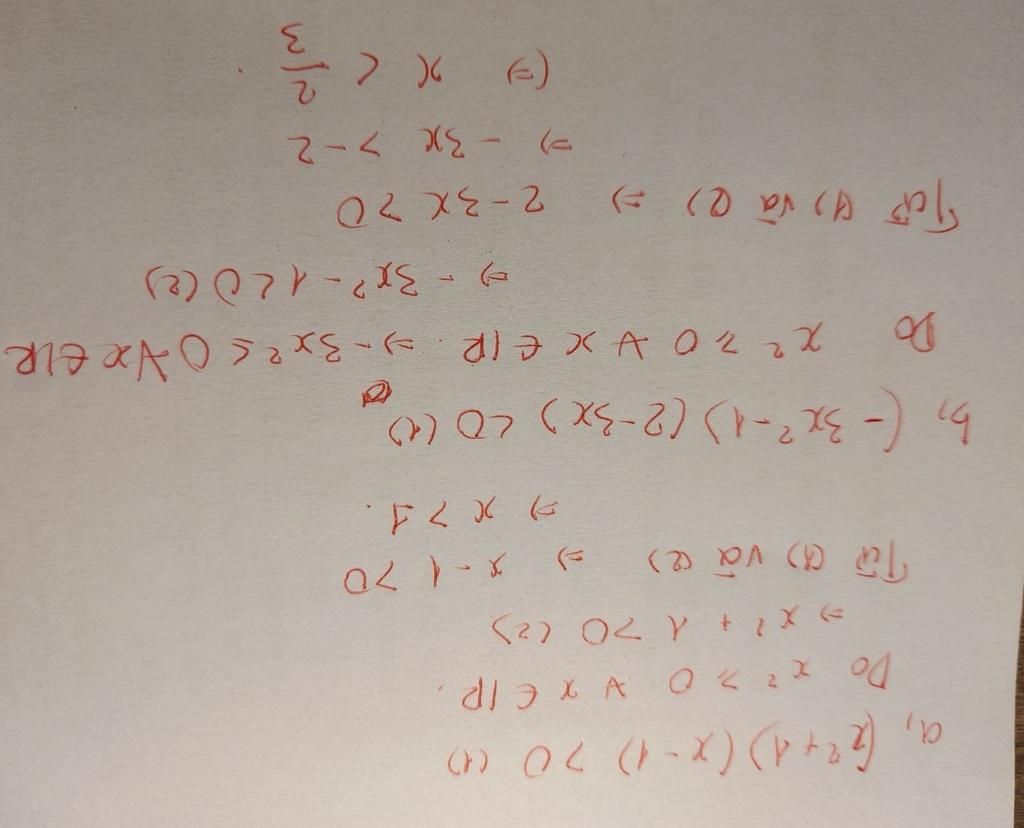 a, (x²+1)(x-1) >0 (1)
Do x² ≥ 0 ∀ x ∈ IR.
=> x² + 1 >0 (2)
Từ (1) và (2) => x-1 >0
=> x >1.
b, (-3x²-1)(2-3x) <0 (1)
Do x² ≥ 0 ∀ x ∈ IR. => -3x² ≤ 0 ∀x ∈ IR
=> -3x²-1 <0 (2)
Từ (1) và (2) => 2-3x >0
=> -3x > -2
(=> x < 2/3.